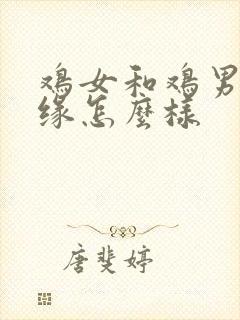 鸡女和鸡男
缘怎麽样
唐斐婷